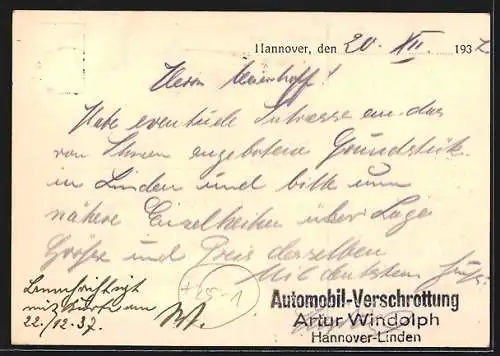 Hannover, den 20. XII. 1937
Herrn Meierhoff!
Habe eventuell Intresse an das
von Ihnen angebotene Grundstück
in Linden und bitte um
nähere Einzelheiten über Lage
Größe und Preis desselben
Mit deutschem Gruß
mit
22./12.37.
Automobil-Verschrottung
Artur Windolph
Hannover-Linden